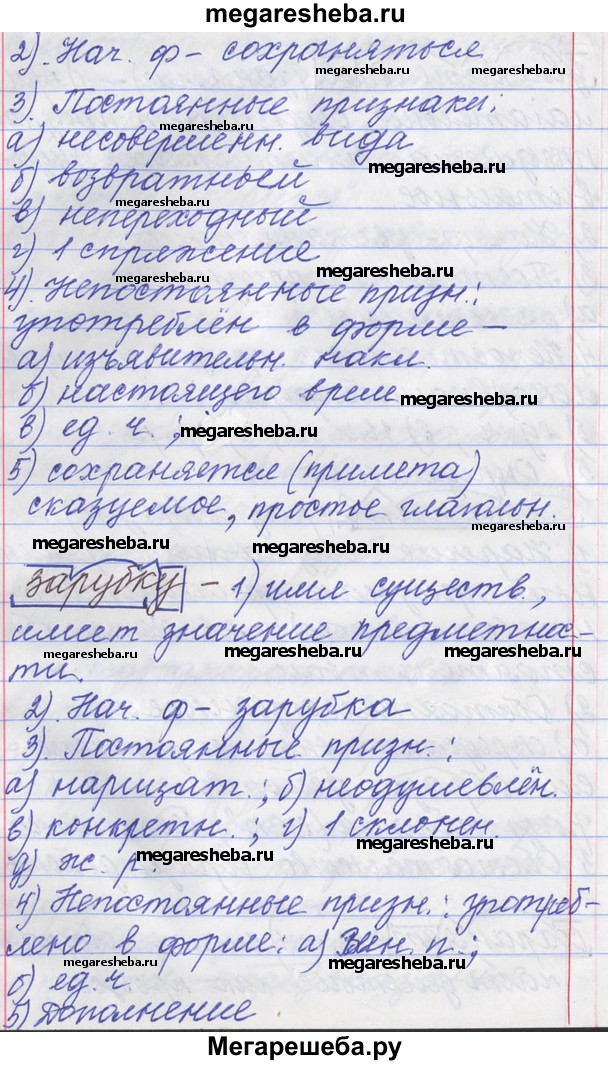 megaresheba.ru
2). Нач. ф – сохраняться
megaresheba.ru megaresheba.ru
3). Постоянные признаки:
megaresheba.ru
а) несовершенн. вида
megaresheba.ru
б) возвратный
в) непереходный
г) 1 спряжение
megaresheba.ru
4). Непостоянные призн.:
употреблён в форме –
а) изъявительн. накл.
б) настоящего време
megaresheba.ru
в) ед. ч. ;
megaresheba.ru
5) сохраняется (примета)
сказуемое, простое глагольн.
megaresheba.ru
megaresheba.ru megaresheba.ru
зарубку – 1) имя существ.,
имеет значение предметнос-
megaresheba.ru megaresheba.ru megaresheba.ru
ти.
2). Нач. ф – зарубка
3). Постоянные призн. :
а) нарицат. ; б) неодушевлён.
в) конкретн. ; г) 1 склонен.
megaresheba.ru megaresheba.ru
д) ж. р.
4) Непостоянные призн. : употреб-
лено в форме: а) Вин. п. ;
megaresheba.ru
б) ед. ч.
5) Дополнение
Мегарешеба.ру